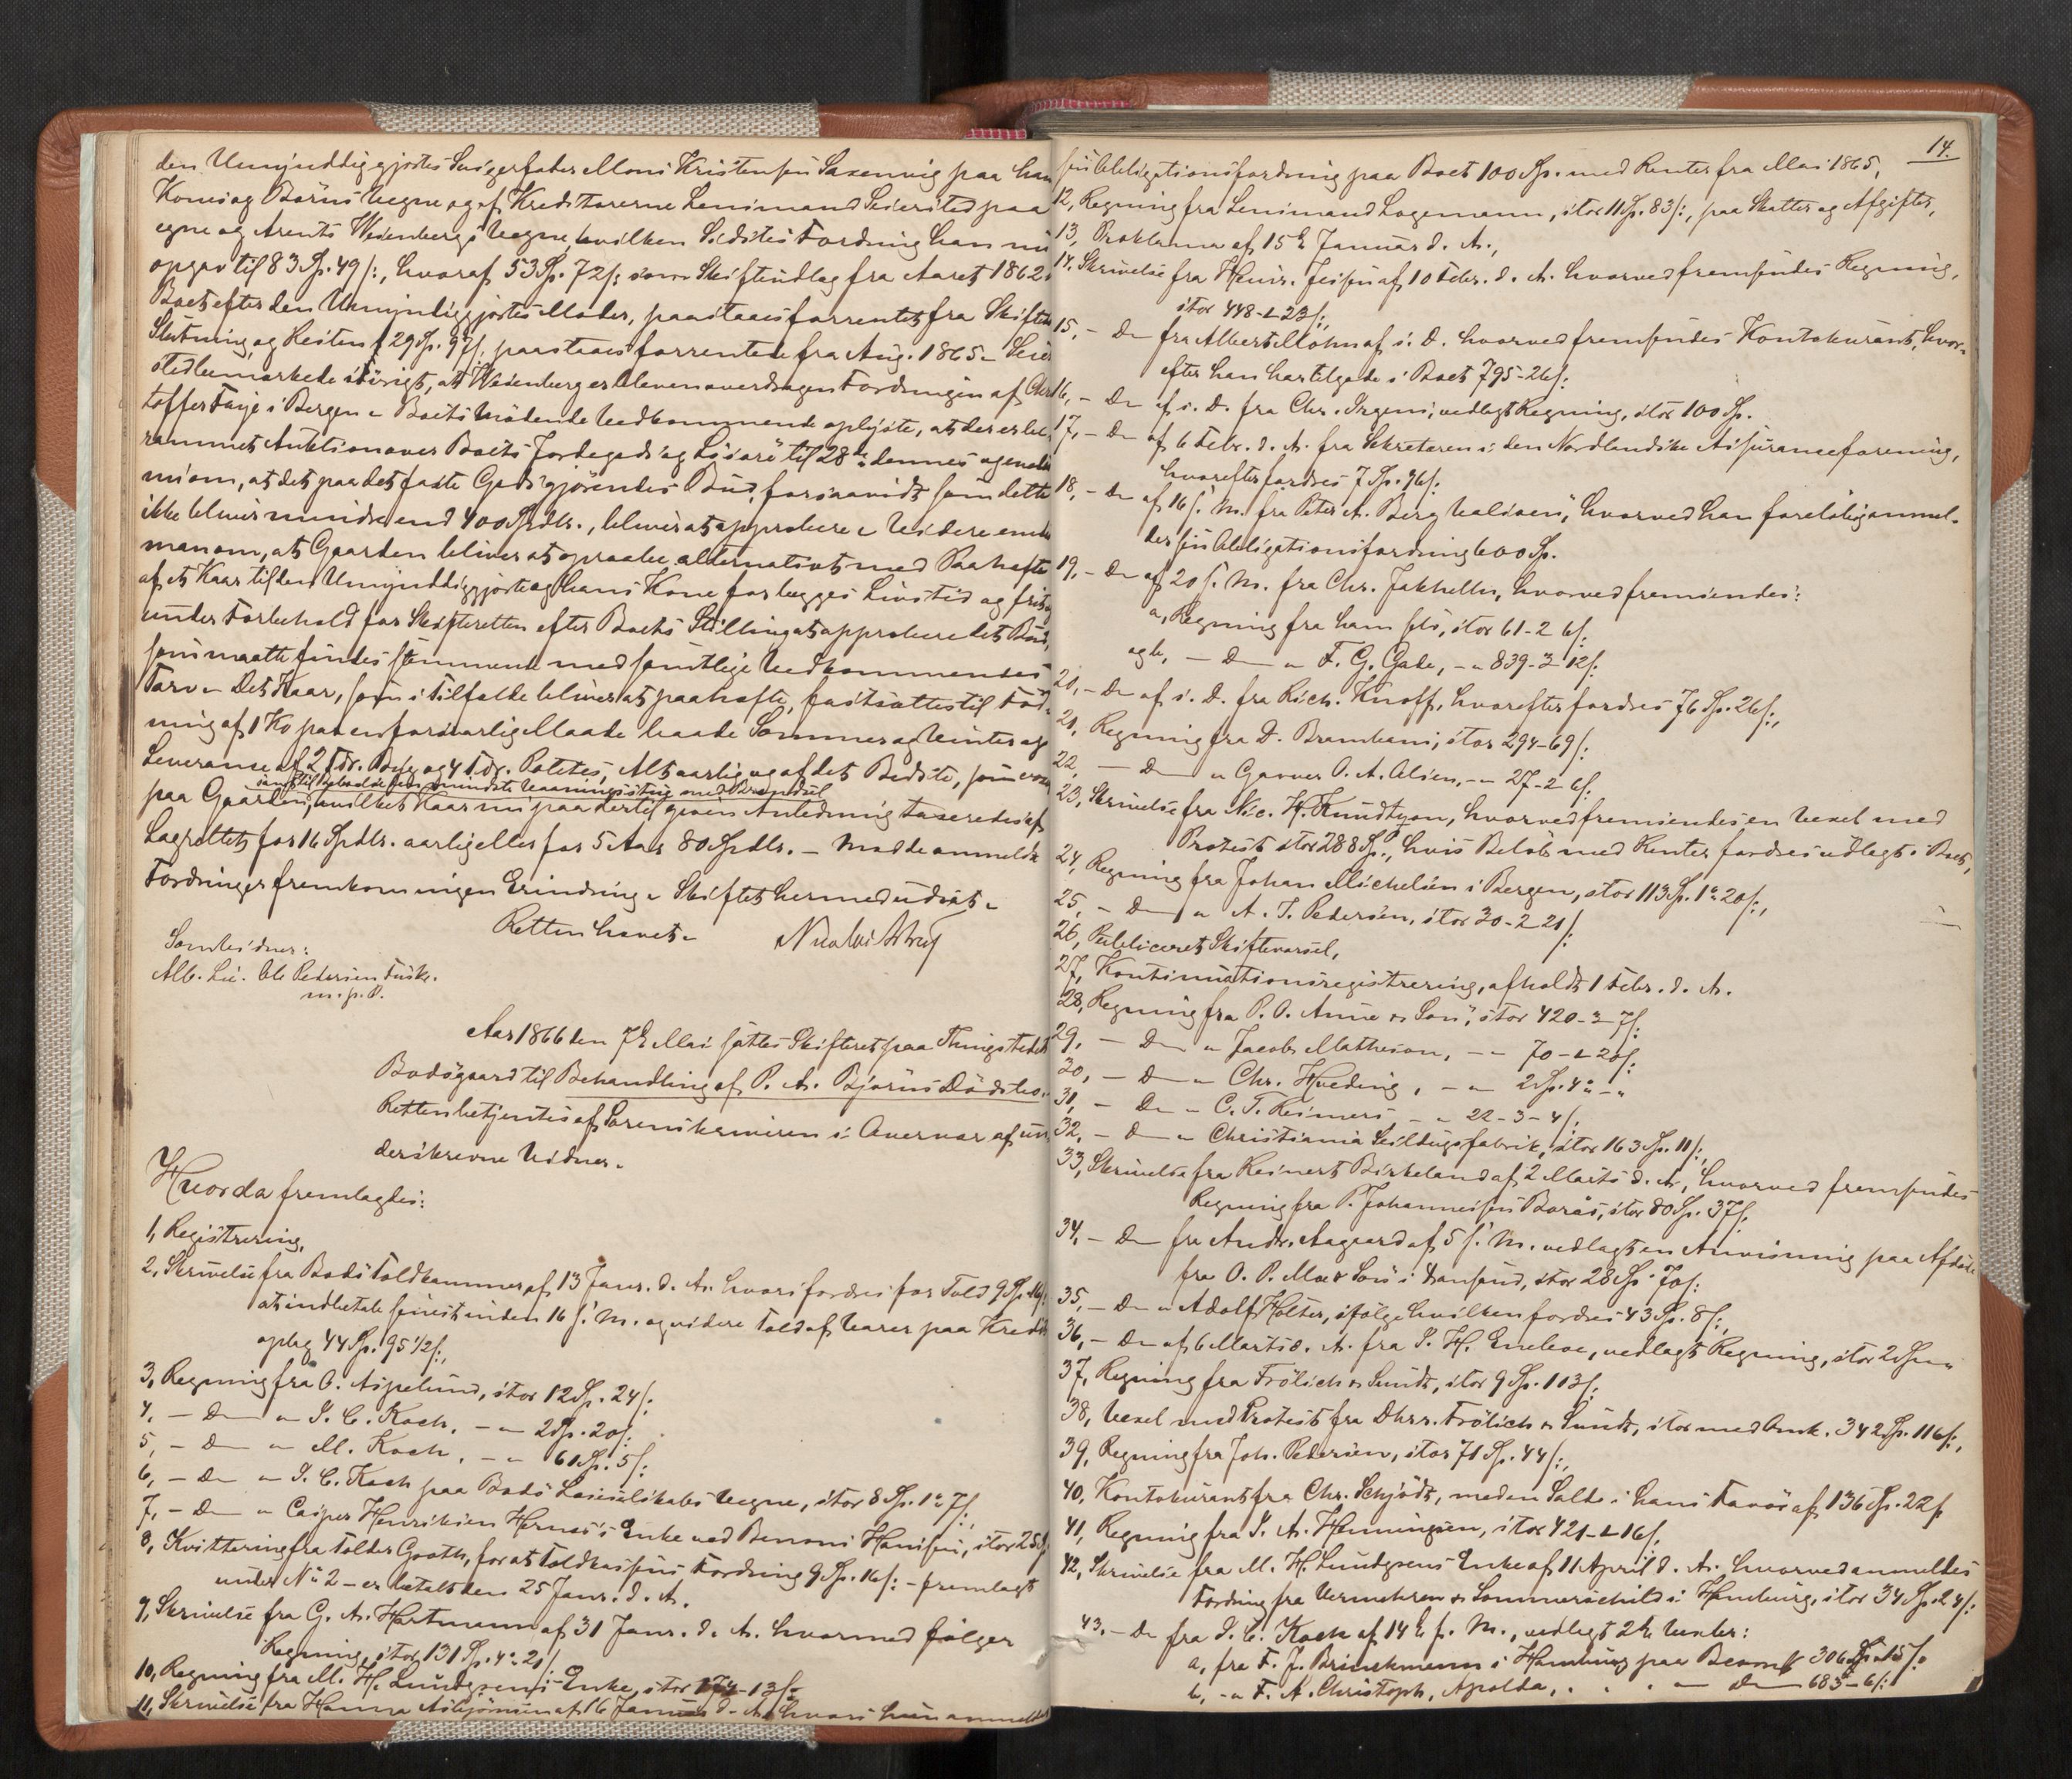 den Umyndiggjortes Svigerfader Mons Kristensen Saxenvig paa hans
Kones og Børns Vegne og af Kreditorerne Lensmand Seiersted paa
egne og Arents Weienbergs Vegne, hvilken Sidstes Fordring han nu
opgav til 83 Sp. 49 s:, hvoraf 53 Sp. 72 s: som Skifteudlag fra Aaret 1862 i
Boet efter den Umyndiggjortes Moder, paastaaes forrentet fra Skiftets
Slutning, og Resten, 29 Sp. 97 s: paastaaes forrentede fra Aug. 1865. Seier-
sted bemærkede iøvrigt, at Weienberg er bleven overdragen Fordringen af Chri-
stoffer Faye i Bergen. Boets mødende Vedkommende oplyste, at der er be-
rammet Auktion over Boets Jordegods og Løsøre til 28de dennes og enedes
nu om, at det paa det faste Gods gjørendes Bud, forsaavidt som dette
ikke bliver mindre end 400 Spdlr., bliver at approbere. Videre enedes
man om, at Gaarden bliver at opraabe alternativt med Paahefte
af et Kaar til den Umyndiggjorte og hans Kone for begges Livstid og frit og
under Forbehold for Skifteretten efter Boets Stilling at approbere det Bud,
som maatte findes stemmende med samtlige Vedkommendes
Tarv. Det Kaar, som i Tilfælde bliver at paahefte, fastsættes til Fød-
ning af 1 Ko paa en forsvarlig Maade baade Sommer og Vinter og
Leverance af 2 Tdr. Byg og 4 Tdr. Potetes, Alt aarlig og af det Bedste, som avles
samt til Beboelse den mindste Vaaningsstue med Brændsel
paa Gaarden, hvilket Kaar nu paa dertil given Anledning taxeredes af
Lagrettet for 16 Spdlr. aarlig eller for 5 Aar 80 Spdlr. – Mod de anmeldte
Fordringer fremkom ingen Erindring. Skiftet hermed udsat.
Retten hævet.
Nicolai Astrup
Somvidner:
Alb. Lie. Ole Pedersen Fuske.
m. p. P.
Aar 1866 den 7de Mai sattes Skifteret paa Thingstedet
Bodøgaard til Behandling af P. A. Bjørns Dødsbo.
Retten betjentes af Sorenskriveren i Overvær af un-
derskrevne Vidner.
Hvorda fremlagdes:
1, Registrering,
2, Skrivelse fra Bodø Toldkammer af 13 Janr. d. A. hvori fordres for Told 9 Sp. 16 s:
at indbetale senest inden 16 s. M. og videre Told af Varer paa Kredit-
oplag 44 Sp. 95 1/2 s:,
3, Regning fra O. Aspelund, stor 12 Sp. 24 s:
4, – Do – „ J. C. Koch, – „ 2 Sp. 20 s:
5, – Do – „ M. Koch, – „ 61 Sp. 5 s:
6, – Do – „ J. C. Koch paa Bodø Læseselskabs Vegne, stor 8 Sp. 1 „ 7 s:,
7, – Do – „ Casper Henriksen Hernæs's Enke ved Benoni Hansen, stor 25 Sp
8, Kvittering fra Tolder Groth, for at Toldkassens Fordring 9 Sp. 16 s: – fremlagt
under No 2 – er betalt den 25 Janr. d. A.
9, Skrivelse fra G. A. Hartmann af 31 Janr. d. A. hvormed følger
Regning, stor 131 Sp. 4 „ 21 s:
10, Regning fra M. H. Lundgrens Enke, stor 174 – 13 s:
11, Skrivelse fra Hanna Asbjørnsen af 16 Januar d. A. hvori hun anmelder
14.
sin Obligationsfordring paa Boet 100 Sp. med Renter fra Mai 1865,
12, Regning fra Lensmand Lagemann, stor 11 Sp. 83 s:, paa Skatter og Afgifter,
13, Proklama af 15de Januar d. A.,
14, Skrivelse fra Henr. Jessen af 10 Febr. d. A. hvorved fremsendes Regning,
stor 448 – 1 – 23 s:,
15, – Do fra Albert Mohn af s. D. hvorved fremsendes Kontokurant, hvor-
efter han har tilgode i Boet 795 – 26 s:
16, – Do af s. D. fra Chr. Irgens, vedlagt Regning, stor 100 Sp.
17, – Do af 6 Febr. d. A. fra Sekretæren i den Nordlandske Assuranceforening,
hvorefter fordres 7 Sp. 96 s:
18, – Do af 16 s. M. fra Peter A. Berg Halsøen, hvorved han foreløbig anmel-
der sin Obligationsfordring 600 Sp.
19, – Do af 20 s. M. fra Chr. Jakhelln, hvorved fremsendes:
a, Regning fra ham selv, stor 61 – 2 6 s:
og b, – Do – „ F. G. Gade, – „ 839 – 3 – 12 s:
20, – Do af s. D. fra Rich. Knoff, hvorefter fordres 76 Sp. 26 s:,
21, Regning fra D. Brambani, stor 294 – 69 s:
22, – Do „ Garver O. A. Olsen, – „ 27 – 2 6 s:
23, Skrivelse fra Nic. H. Knudtzon, hvorved fremsendes en Vexel med
Protest stor 288 Sp., hvis Beløb med Renter fordres udlagt i Boet,
24, Regning fra Johan Michelsen i Bergen, stor 113 Sp. 1 „ 20 s:,
25, – Do „ A. J. Pedersen, stor 30 – 2 21 s:
26, Publiceret Skiftevarsel,
27, Kontinuationsregistrering, afholdt 1 Febr. d. A.
28, Regning fra P. O. Aune & Søn, stor 420 – 3 – 7 s:
29, – Do „ Jacob Matheson, – „ 70 – 1 – 20 s:
30, – Do „ Chr. Hveding, – „ 2 Sp. 4 „ – „
31, – Do – „ C. T. Reimers – „ 22 – 3 – 4 s:
32, – Do „ Christiania Seildugsfabrik, stor 163 Sp. 11 s:,
33, Skrivelse fra Reinert Birkeland af 2 Marts d. A., hvorved fremsendes
Regning fra P. Johannessen Borås, stor 80 Sp. 37 s:
34, – Do fra Andr. Aagaard af 5 s. M. vedlagt en Anvisning paa Afdøde
fra O. P. Moe & Søn i , stor 28 Sp. 70 s:
35, – Do „ Adolf Holter, ifølge hvilken fordres 43 Sp. 8 s:,
36, – Do af 6 Marts d. A. fra S. H. , vedlagt Regning, stor 2 Sp. „ „
37, Regning fra Frölich & Sundt, stor 9 Sp. 113 s:
38, Vexel med Protest fra Dhrr. Frölich & Sundt, stor med Omk. 342 Sp. 116 s:,
39, Regning fra Joh. Pedersen, stor 71 Sp. 44 s:,
40, Kontokurant fra Chr. Schjödt, med en Saldo i hans Favør af 136 Sp. 22 s
41, Regning fra S. A. Henningsen, stor 421 – 1 – 16 s:
42, Skrivelse fra M. H. Lundgrens Enke af 11 April d. A. hvorved anmeldes
Fordring fra Vermehren & Sommerschild i Hamburg, stor 34 Sp. 24 s:
43, – Do fra J. C. Koch af 14de s. M., vedlagt 2de Vexler:
a, fra F. J. Brinckmann i Hamburg paa 306 15 s:
b, – „ F. A. Christoph, Apolda, . . . – „ Do 683 – 6 s: